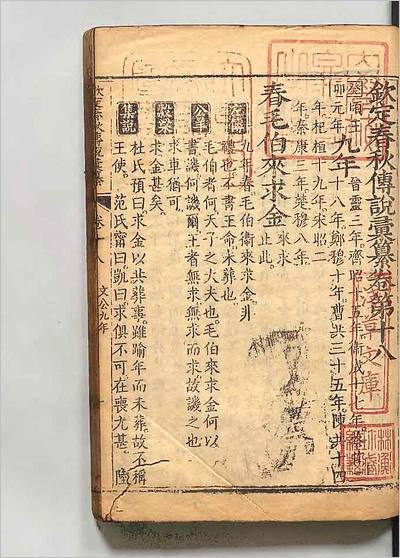 欽定春秋傳說彙纂卷第十八
九年
晉靈三年齊昭十五年衛成十七年
卯元年十八年鄭穆十年曹共三十五年陳
年杞桓十九年宋昭二
年秦康三年楚穆八年
春毛伯來求金
來求
止此
左傳
九年春毛伯衛來求金非
禮也不書王命未葬也
公羊
毛伯者何天子之大夫也毛伯來求金何以
書譏何譏爾王者無求無求而求故譏之也
穀梁
求車猶可
求金甚矣
集說
杜氏預曰求金以共葬事雖踰年而未葬故不稱
王使 范氏甯曰凱曰求俱不可在喪尤甚 陸
欽定春秋傳說彙纂
卷十八
文公九年